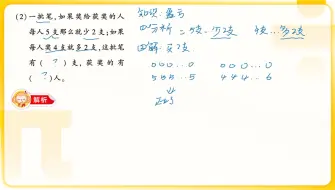 (2)一批笔,如果奖给获奖的人
每人5支那么就少2支;如果
每人奖4支就多2支,这批笔
有( ? )支,获奖的有
( ? )人。
解析
知识:盈亏
5支 少2支 4支 多2支
图解:买2支
0 0 0 … 0 0 0 0 … 0
5 5 5 … 5 4 4 4 … 6
↓